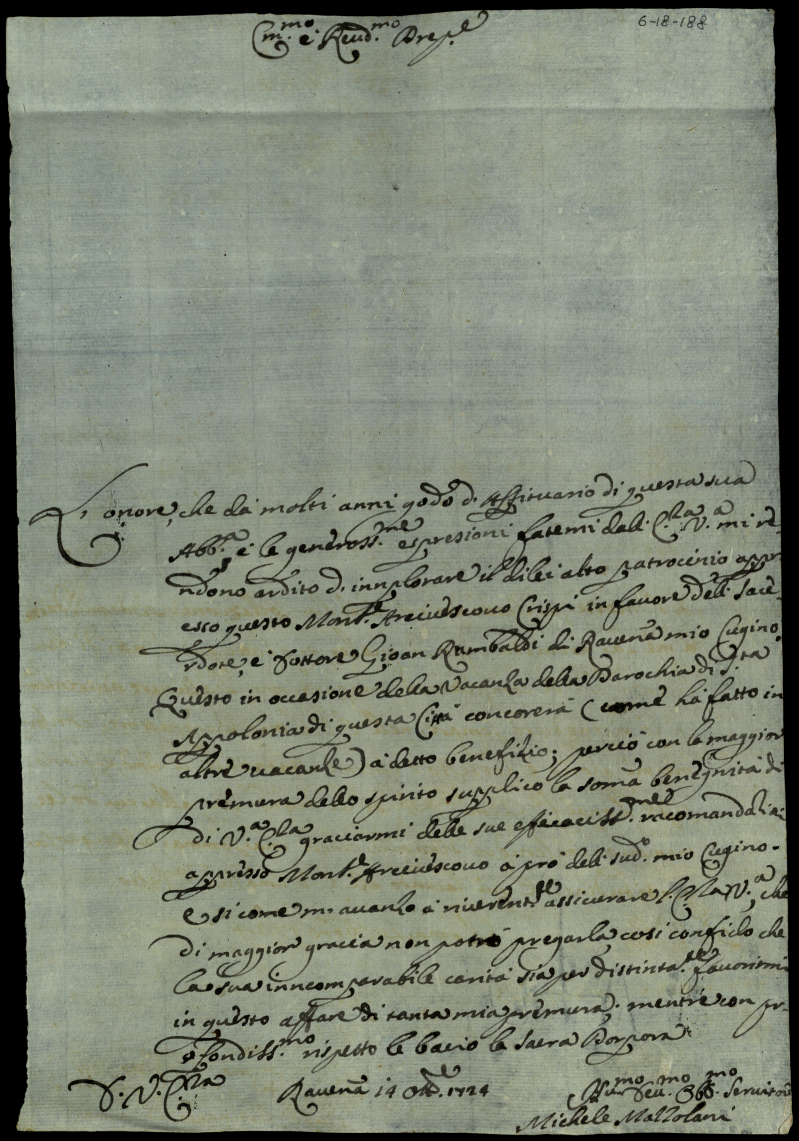 6-18-188
Em.mo e Reud.mo Prep.e
L'onore, che da molti anni godo d. Affituario di questa sua
Abb.a e le geneross.me espresioni fatemi dall E.za V.a mi re-
ndono ardito d. innplorare il dilei alto patrocinio appr
esso questo Mons.e Arcivescovo Crispi in favore dell Sace-
rdote, e Dottore Gioan Rambaldi di Ravena mio Cugino.
Questo in occesione della Vacanza della Parochia di S.ta
Appolonia di questa Città concorerà (come hà fatto in
altre vacanze) à detto benefizio; perciò con la maggior
premura dello spirito supplico la soma benegnità di
di V.a E.za graciarmi delle sue eficaciss.me racomandazi.
appresso Mons.e Arcivescovo à prò dell sud.o mio Cugino.
e si come m. avanzo à riverent.te assicurare l'E.za V.a, che
di maggior gracia non potrò pregarla così confido che
la sua inncomparabile carità sia per distinta.te favorirmi
in questo affare di tanta mia premura. mentre con pr-
ofondiss.mo rispetto le bacio la Sacra Porpora
D. V. E.za Ravena 14 Ott.e 1724
Um.mo Deu.mo Obb.mo Servitore
Michele Mazzolani